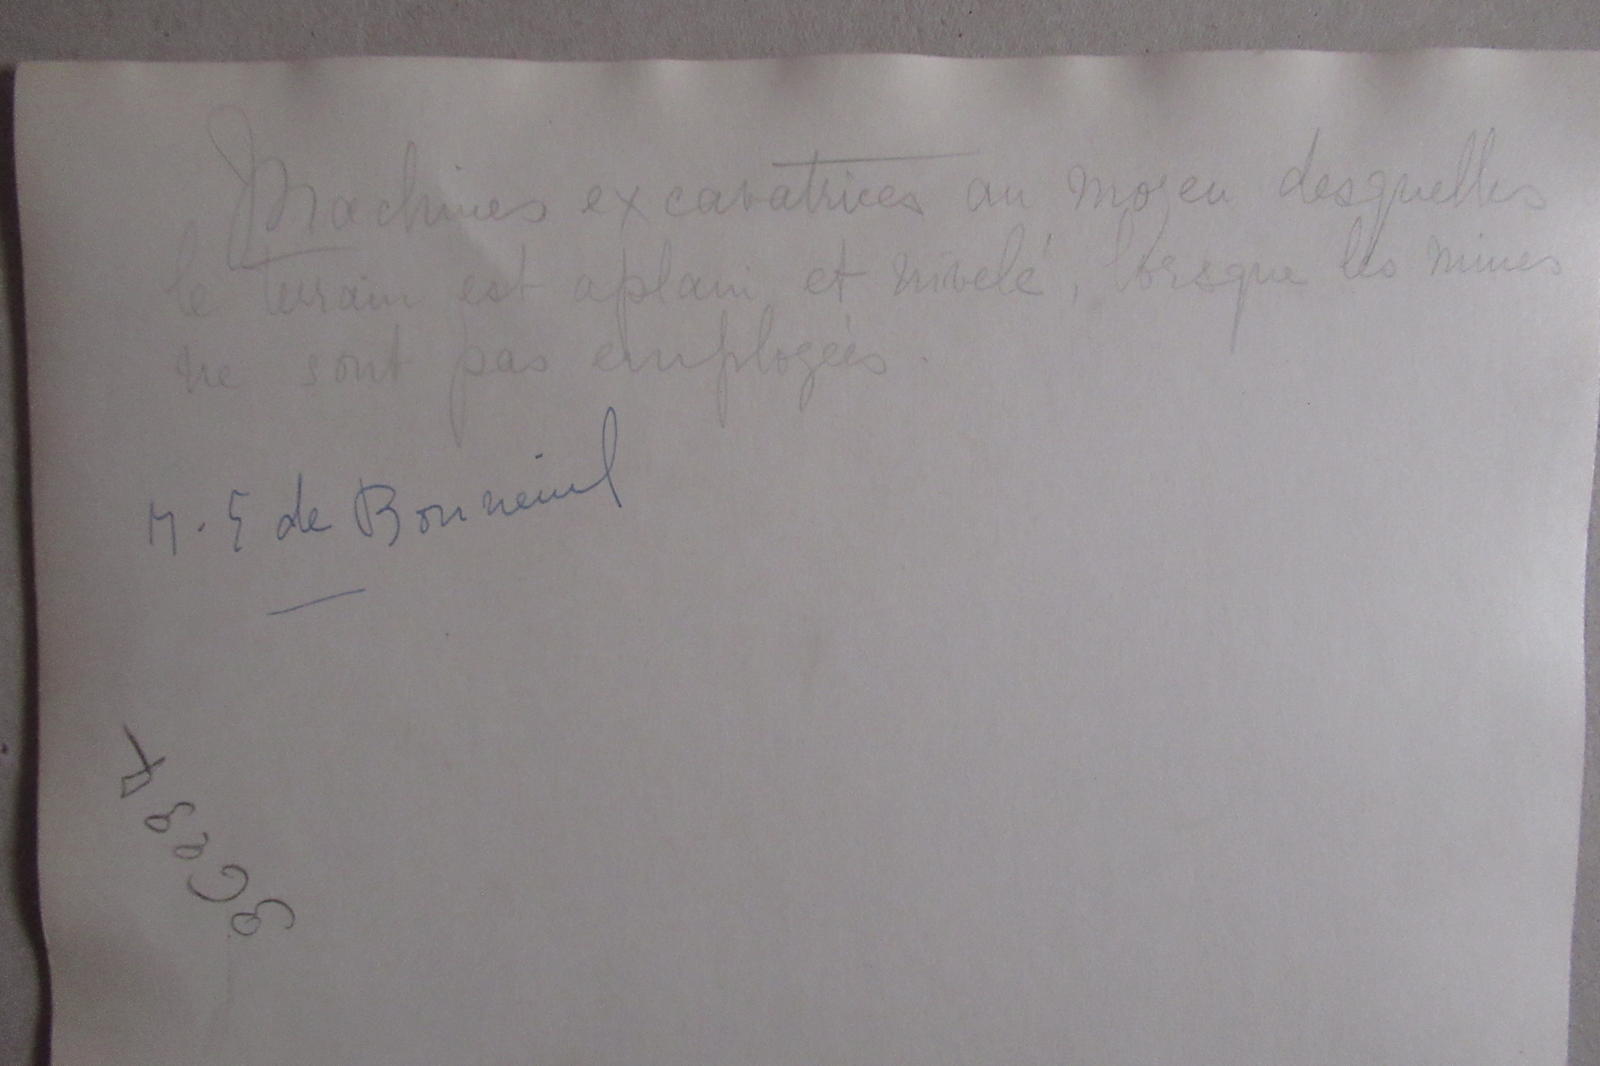 Machines excavatrices au moyen desquelles
le terrain est aplani et nivelé, lorsque les mines
ne sont pas employées.
M. E de Bonneuil